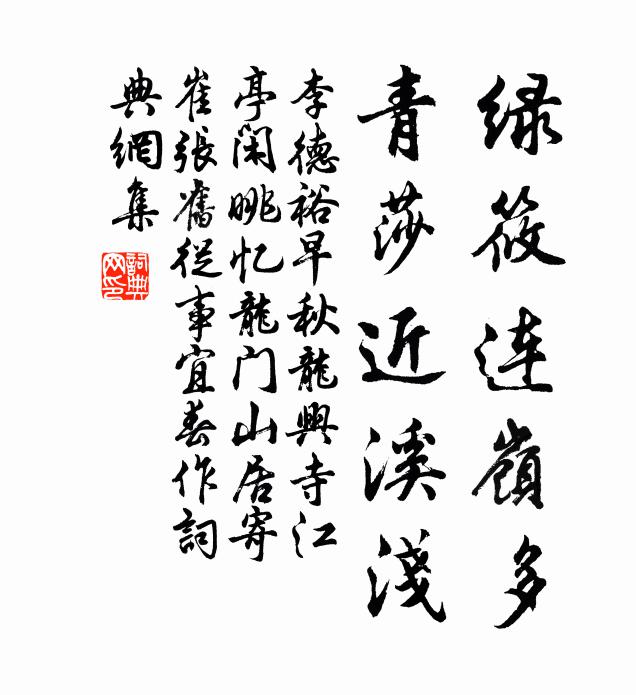 绿筱连嶺多
青莎近溪淺
李德裕早秋龍興寺江
亭闲眺忆龍门山居寄
崔張舊從事宜春作詞
典網集
詞典网印